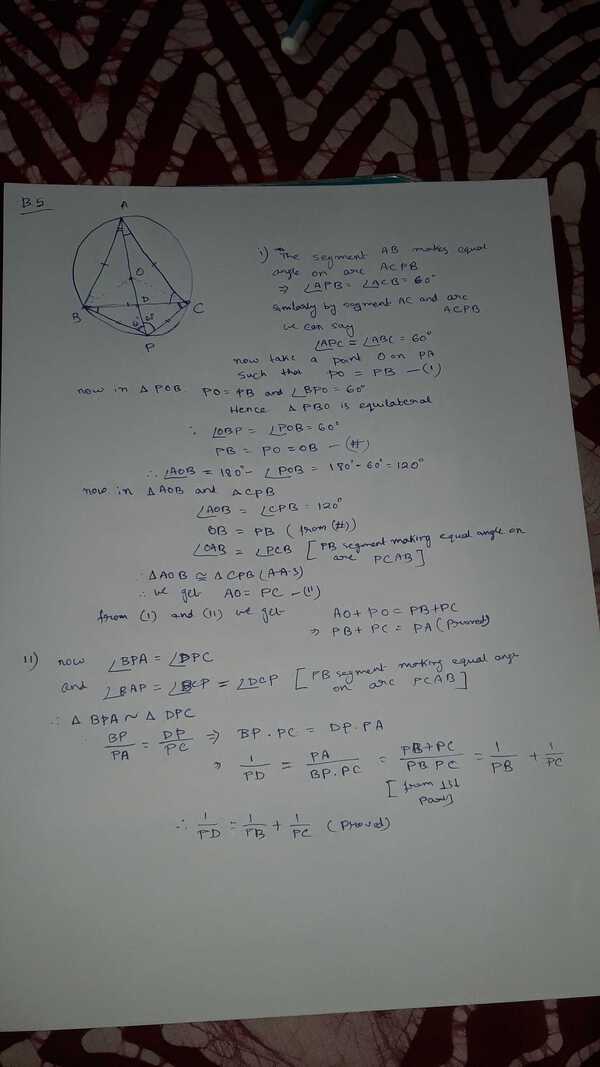 B.5
A
O
D
B
C
60° 60°
P
i) The segment AB makes equal
angle on arc ACPB
⇒ ∠APB = ∠ACB = 60°
Similarly by segment AC and arc
ACPB
we can say
∠APC = ∠ABC = 60°
now take a point O on PA
such that PO = PB —(1)
now in △POB. PO = PB and ∠BPO = 60°
Hence △PBO is equilateral
∴ ∠OBP = ∠POB = 60°
PB = PO = OB —(#)
∴ ∠AOB = 180° - ∠POB = 180° - 60° = 120°
now in △AOB and △CPB
∠AOB = ∠CPB = 120°
OB = PB (from (#))
∠OAB = ∠PCB [PB segment making equal angle on
arc PCAB]
∴ △AOB ≅ △CPB (A-A-S)
∴ we get AO = PC —(11)
from (1) and (11) we get AO + PO = PB + PC
⇒ PB + PC = PA (Proved)
11) now ∠BPA = ∠DPC
and ∠BAP = ∠BCP = ∠DCP [PB segment making equal angle
on arc PCAB]
∴ △BPA ~ △DPC
∴ BP/PA = DP/PC ⇒ BP.PC = DP.PA
⇒ 1/PD = PA/BP.PC = PB+PC/PB.PC = 1/PB + 1/PC
[from 1st
Part]
∴ 1/PD = 1/PB + 1/PC (Proved)